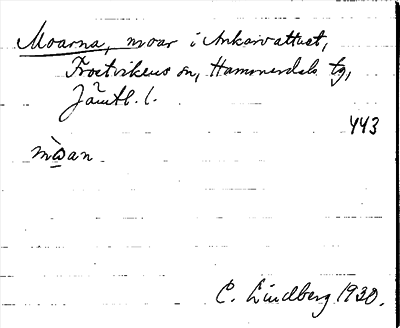 Moarna, moar i Ankarvattnet,
Frostvikens sn, Hammerdals tg,
Jämtl. l.
443
mò̱an
C. Lindberg 1930.